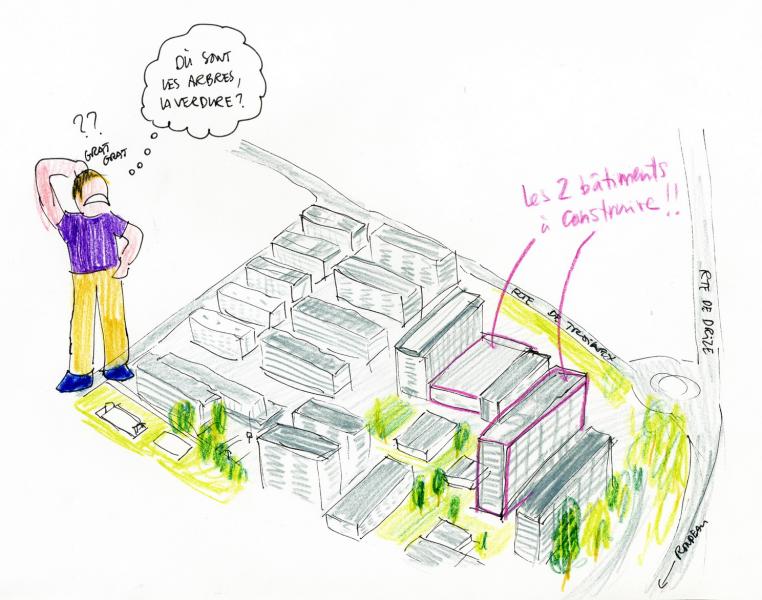 OÙ SONT
LES ARBRES,
LA VERDURE?
??
GRAT
GRAT
Les 2 bâtiments
à construire!!
RTE DE TROINEX
RTE DE DRIZE
← RONDEAU